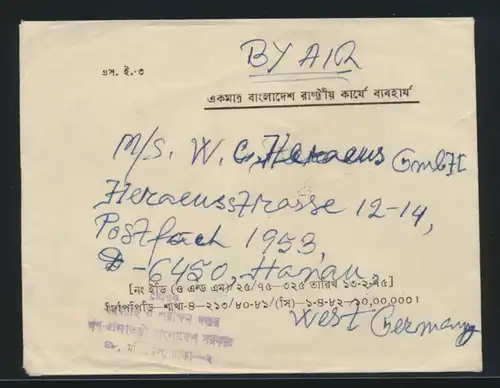 BY AIR
এস. ই.-৩
একমাত্র বাংলাদেশ রাষ্ট্রীয় কার্যে ব্যবহার্য
M/S. W. C. Heraeus GmbH
Heraeusstrasse 12-14,
Postfach 1953,
D-6450, Hanau
[নং ইডি (ও এন্ড এম) ২৫/৭৫-৩২৫ তারিখ ১৩-২-৭৫]
বিজিপিডি- শাখা-৪-২১৩/৮০-৮১/(সি) ১-৪-৮২
West Germany
দপ্তর
গণ-প্রজাতন্ত্রী বাংলাদেশ সরকার
ঢাকা-২